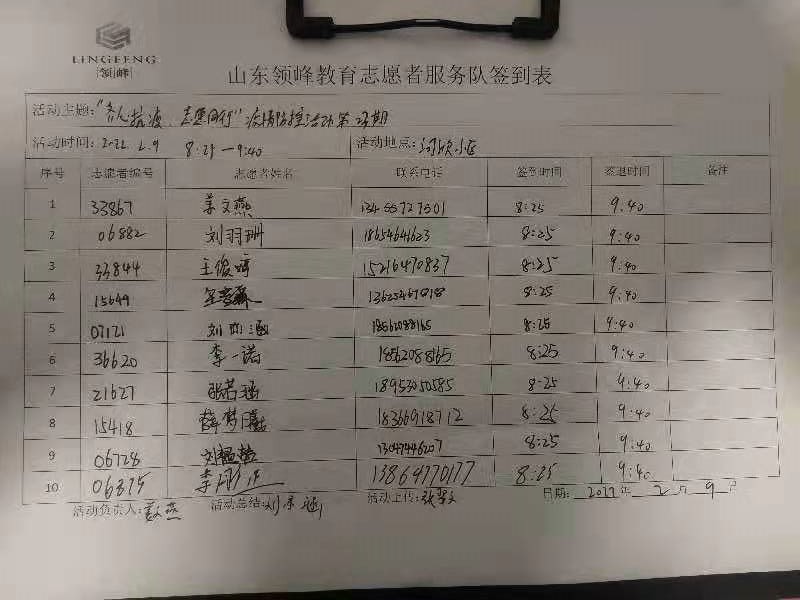 LINGFENG
领峰
山东领峰教育志愿者服务队签到表
活动主题: 疫情防控活动第 期
活动时间: 2022.2.9 8:25—9:40 活动地点: 小区
序号 志愿者编号 志愿者姓名 联系电话 签到时间 签退时间 备注
1 33867 姜文燕 8:25 9:40
2 06882 刘羽珊 18654641623 8:25 9:40
3 33844 王俊 15216470837 8:25 9:40
4 15649 8:25 9:40
5 07121 刘 涵 18562088165 8:25 9:40
6 36620 李一诺 18562088165 8:25 9:40
7 21627 张若涵 18953050585 8:25 9:40
8 15418 薛梦 18366918712 8:25 9:40
9 06728 刘 13047446207 8:25 9:40
10 06375 李 正 13864770177 8:25 9:40
活动负责人: 燕 活动总结: 刘 涵 活动上传: 张 文 日期: 年 2 月 9 日